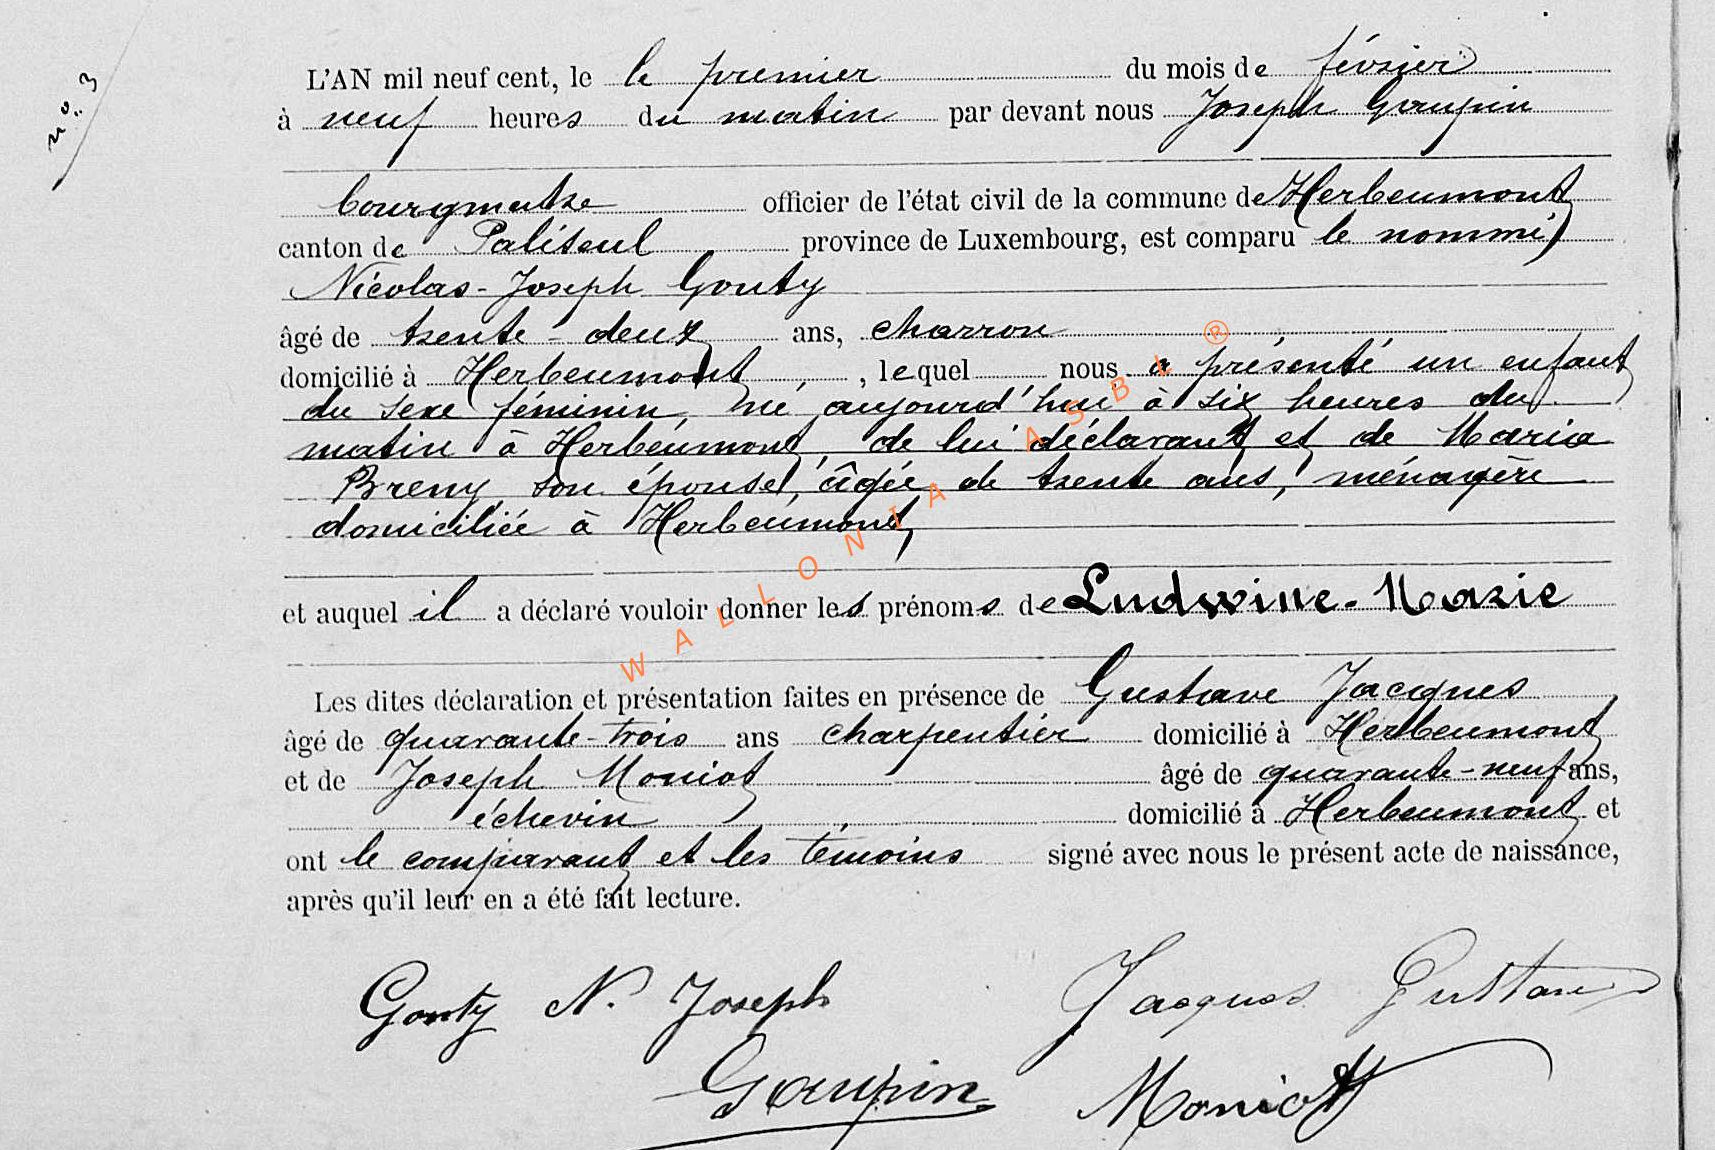 n° 3
L'AN mil neuf cent, le le premier du mois de février
à neuf heures du matin par devant nous Joseph Goupin
bourgmestre officier de l'état civil de la commune de Herbeumont
canton de Paliseul province de Luxembourg, est comparu le nommé
Nicolas-Joseph Gonty
âgé de trente-deux ans, charron
domicilié à Herbeumont, lequel nous a présenté un enfant
du sexe féminin, né aujourd'hui à six heures du
matin à Herbeumont, de lui déclarant et de Maria
Breny, son épouse, âgée de trente ans, ménagère
domiciliée à Herbeumont
et auquel il a déclaré vouloir donner les prénoms de Ludwine-Marie
Les dites déclaration et présentation faites en présence de Gustave Jacques
âgé de quarante-trois ans charpentier domicilié à Herbeumont
et de Joseph Moniot âgé de quarante-neuf ans,
échevin domicilié à Herbeumont et
ont le comparant et les témoins signé avec nous le présent acte de naissance,
après qu'il leur en a été fait lecture.
Gonty N. Joseph Jacques Gustave
Goupin Moniot
WALLONIA ASBL ®